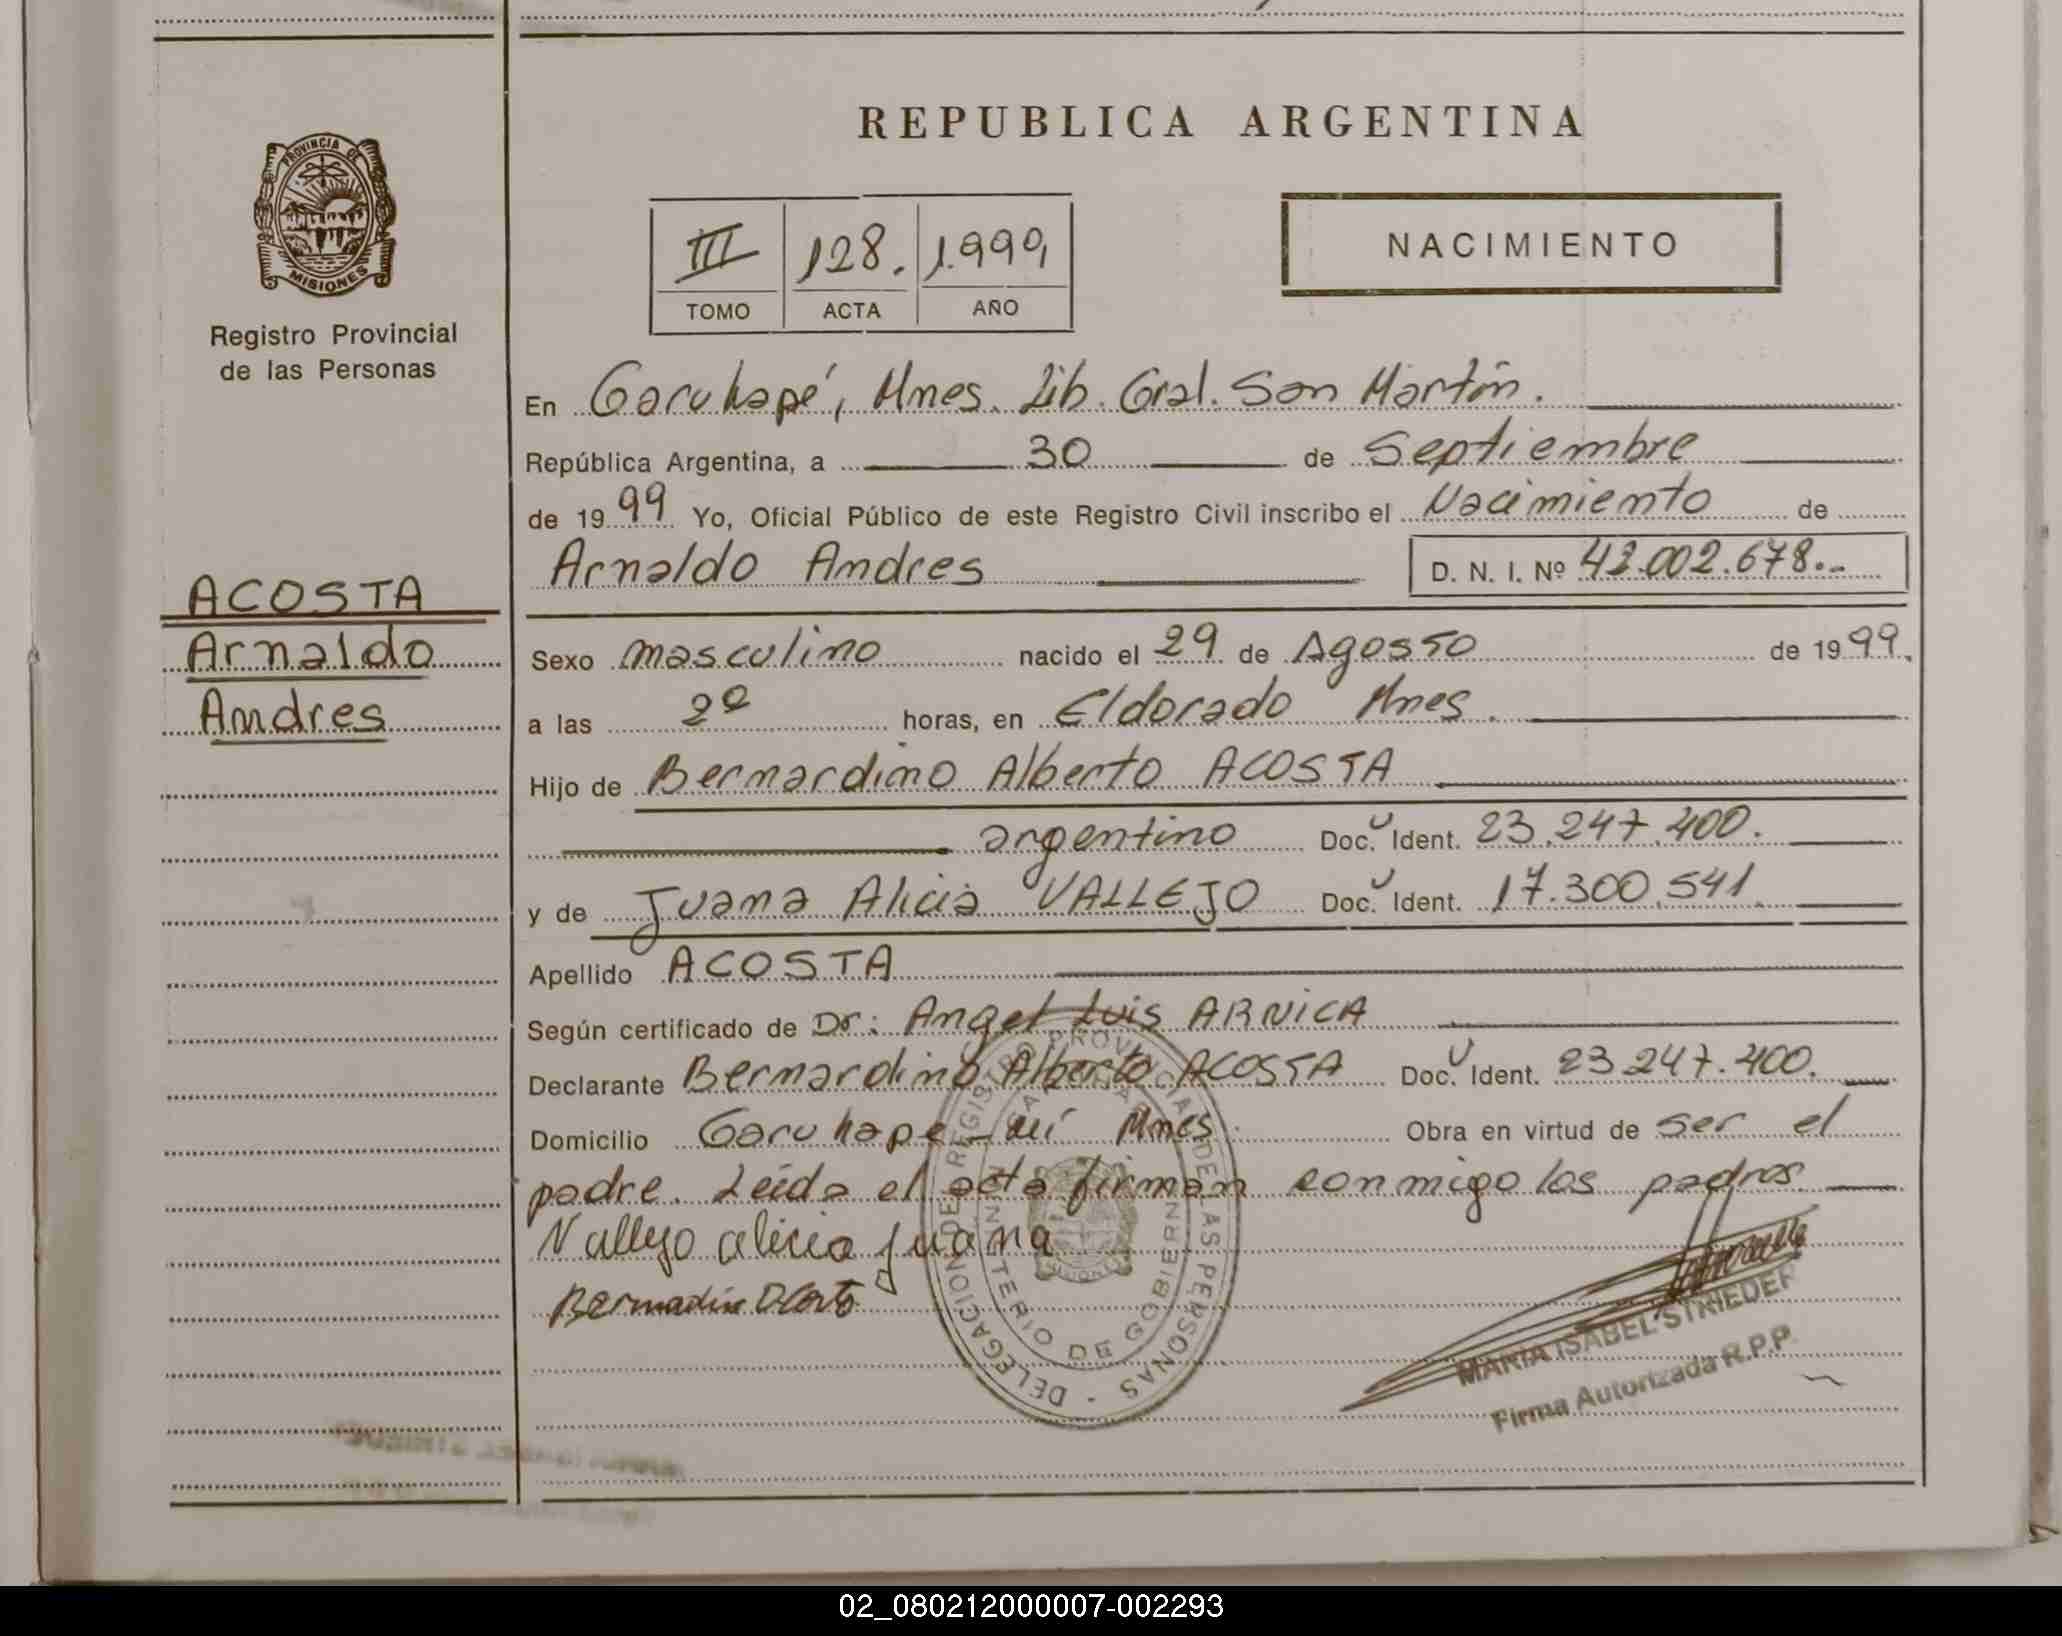 REPUBLICA ARGENTINA
PROVINCIA DE
MISIONES
Registro Provincial
de las Personas
III 128. 1.999
TOMO ACTA AÑO
NACIMIENTO
En Garuhapé, Mnes. Lib. Gral. San Martín.
República Argentina, a 30 de Septiembre
de 1999 Yo, Oficial Público de este Registro Civil inscribo el Nacimiento de
Arnaldo Andres D. N. I. Nº 42.002.678.-
ACOSTA
Arnaldo
Andres
Sexo masculino nacido el 29 de Agosto de 1999.
a las horas, en Eldorado Mnes.
Hijo de Bernardino Alberto ACOSTA
argentino Doc. Ident. 23.247.400.
y de Juana Alicia VALLEJO Doc. Ident. 17.300.541.
Apellido ACOSTA
Según certificado de Dr: Angel Luis ARNICA
Declarante Bernardino Alberto ACOSTA Doc. Ident. 23.247.400.
Domicilio Garuhape-mí Mnes. Obra en virtud de ser el
padre. Leída el acta firman conmigo los padres.
Vallejo alicia Juana
DELEGACION DE REGISTRO PROVINCIAL DE LAS PERSONAS
MINISTERIO DE GOBIERNO
MISIONES
MARIA ISABEL STRIEDER
Firma Autorizada R.P.P.
02_080212000007-002293